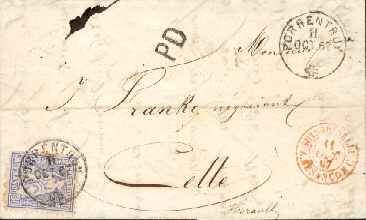 PORRENTRUY
11
OCT 67
PD
Monsieur
J Franke négociant
11
PORRENTRUY
11
OCT 67
Cette
Herault